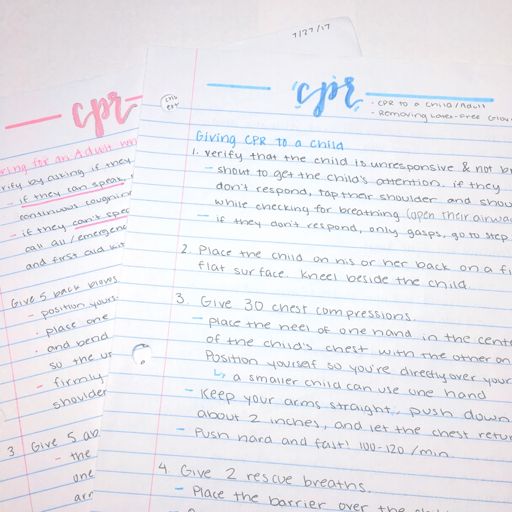 7/27/17
cpr
- CPR to a child/Adult
- Removing Latex-Free
Giving CPR to a child
1. verify that the child is unresponsive & not
- shout to get the child's attention. if they
don't respond, tap their shoulder and
while checking for breathing (open their
- if they don't respond, only gasps, go to step
2. Place the child on his or her back on a
flat surface. kneel beside the child.
3. Give 30 chest compressions.
- Place the heel of one hand in the
of the child's chest with the other on
Position yourself so you're directly over your
↳ a smaller child can use one hand
- Keep your arms straight, push down
about 2 inches, and let the chest
- Push hard and fast! 100-120 /min.
4. Give 2 rescue breaths.
- Place the barrier over the
cpr
for an Adult
by asking if they
- if they can speak,
continuous
- if they can't
call 911/
and first aid kit
Give 5 back blows
- position
- place one
- and bend
so the
- firmly
shoulder
3. Give 5
- the
one